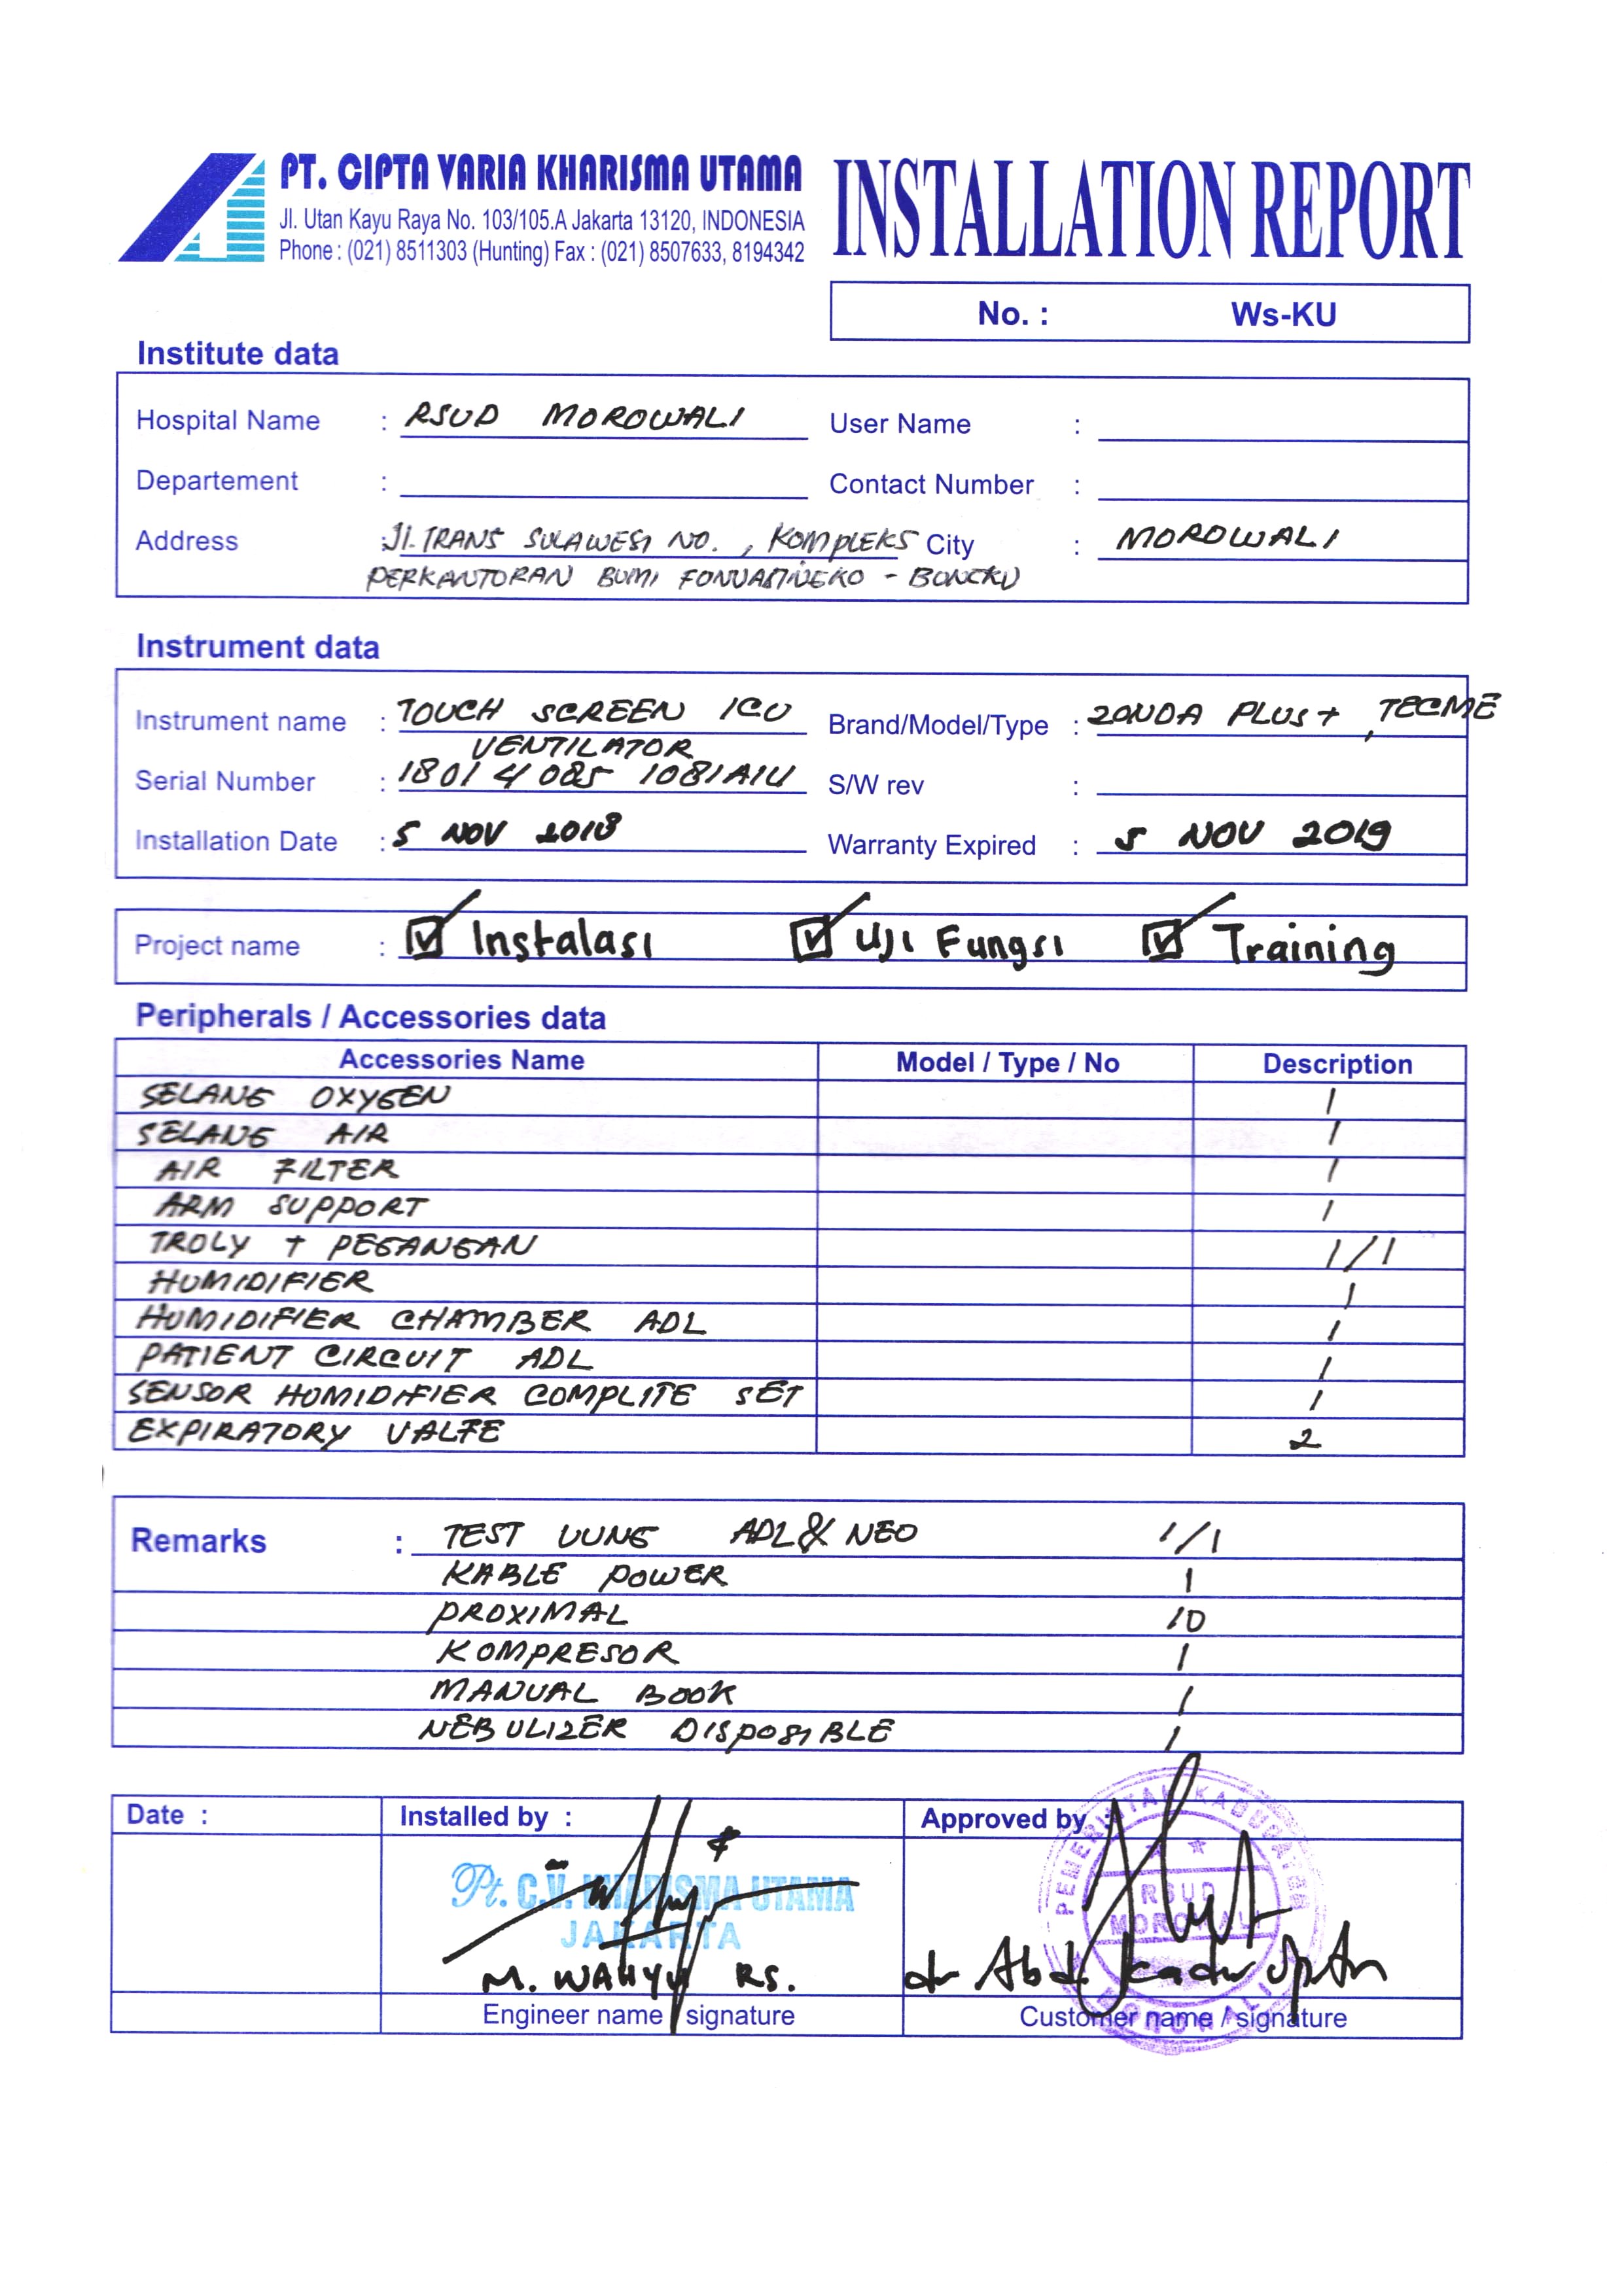 PT. CIPTA VARIA KHARISMA UTAMA
Jl. Utan Kayu Raya No. 103/105.A Jakarta 13120, INDONESIA
Phone : (021) 8511303 (Hunting) Fax : (021) 8507633, 8194342
INSTALLATION REPORT
No. : Ws-KU
Institute data
Hospital Name : RSUD MOROWALI User Name :
Departement : Contact Number :
Address : Jl. TRANS SULAWESI NO. , KOMPLEKS City : MOROWALI
PERKANTORAN BUMI - BUNGKU
Instrument data
Instrument name : TOUCH SCREEN ICU Brand/Model/Type : , TECME
VENTILATOR
Serial Number : S/W rev :
Installation Date : 5 NOV 2018 Warranty Expired : 5 NOV 2019
Project name : Instalasi Uji Fungsi Training
Peripherals / Accessories data
Accessories Name Model / Type / No Description
SELANG OXYGEN 1
SELANG AIR 1
AIR FILTER 1
ARM SUPPORT 1
TROLY + PEGANGAN 1/1
HUMIDIFIER 1
HUMIDIFIER CHAMBER ADL 1
PATIENT CIRCUIT ADL 1
SENSOR HUMIDIFIER COMPLITE SET 1
EXPIRATORY VALFE 2
Remarks : TEST LUNG ADL & NEO 1/1
KABLE POWER 1
PROXIMAL 10
KOMPRESOR 1
MANUAL BOOK 1
NEBULIZER DISPOSIBLE 1
Date : Installed by : Approved by :
Pt. C.V. KHARISMA UTAMA
JAKARTA
PEMERINTAH KABUPATEN
RSUD
MOROWALI
MOROWALI
M. WAHYU RS. dr Abd Kadir
Engineer name / signature Customer name / signature